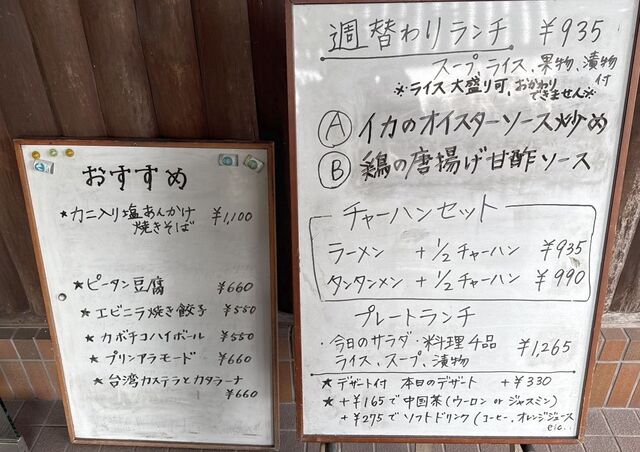 おすすめ
★カニ入り塩あんかけ ¥1,100
焼きそば
★ピータン豆腐 ¥660
★エビニラ焼き餃子 ¥550
★カボチコハイボール ¥550
★プリンアラモード ¥660
★台湾カステラとカタラーナ
¥660
週替わりランチ ¥935
スープ、ライス、果物、漬物
付
※ライス大盛り可、おかわり
できません※
Ⓐ イカのオイスターソース炒め
Ⓑ 鶏の唐揚げ甘酢ソース
チャーハンセット
ラーメン +1/2チャーハン ¥935
タンタンメン +1/2チャーハン ¥990
プレートランチ
・今日のサラダ・料理4品
ライス、スープ、漬物 ¥1,265
★デザート付 本日のデザート +¥330
★+¥165で中国茶(ウーロン or ジャスミン)
+¥275でソフトドリンク(コーヒー、オレンジジュース
etc.